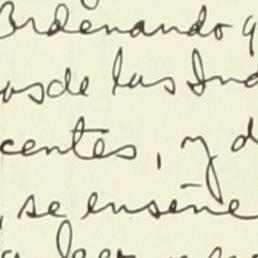 Ordenando q
osde las Ind
centes, y d
, se enseñe
a leer